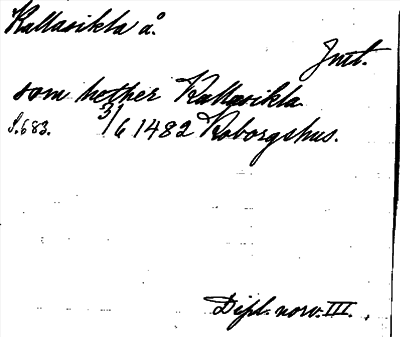 Kallasikla å.
Just.
som hether Kallasikla
S. 683. 3/6 1482 Koborgshus.
Dipl. norv. III.